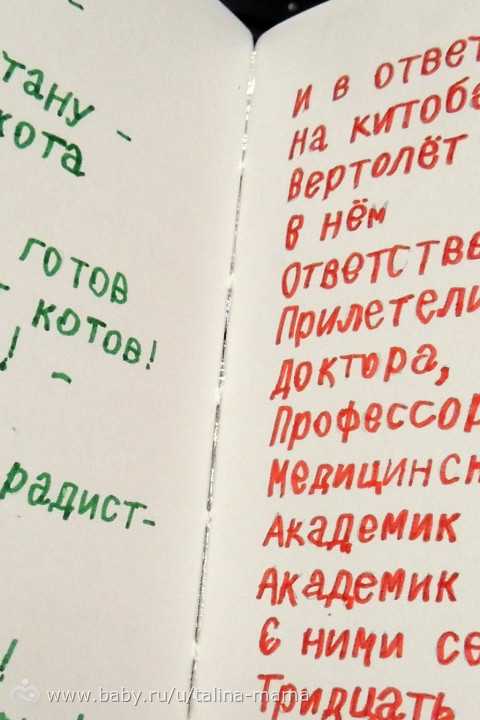 тану -
кота
готов
- котов!
! -
радист-
!
и в ответ
на китоба
вертолёт
в нём
ответстве
Прилетели
доктора,
Профессор
медицинск
Академик
Академик
С ними се
Тридцать
www.baby.ru/u/talina-mama